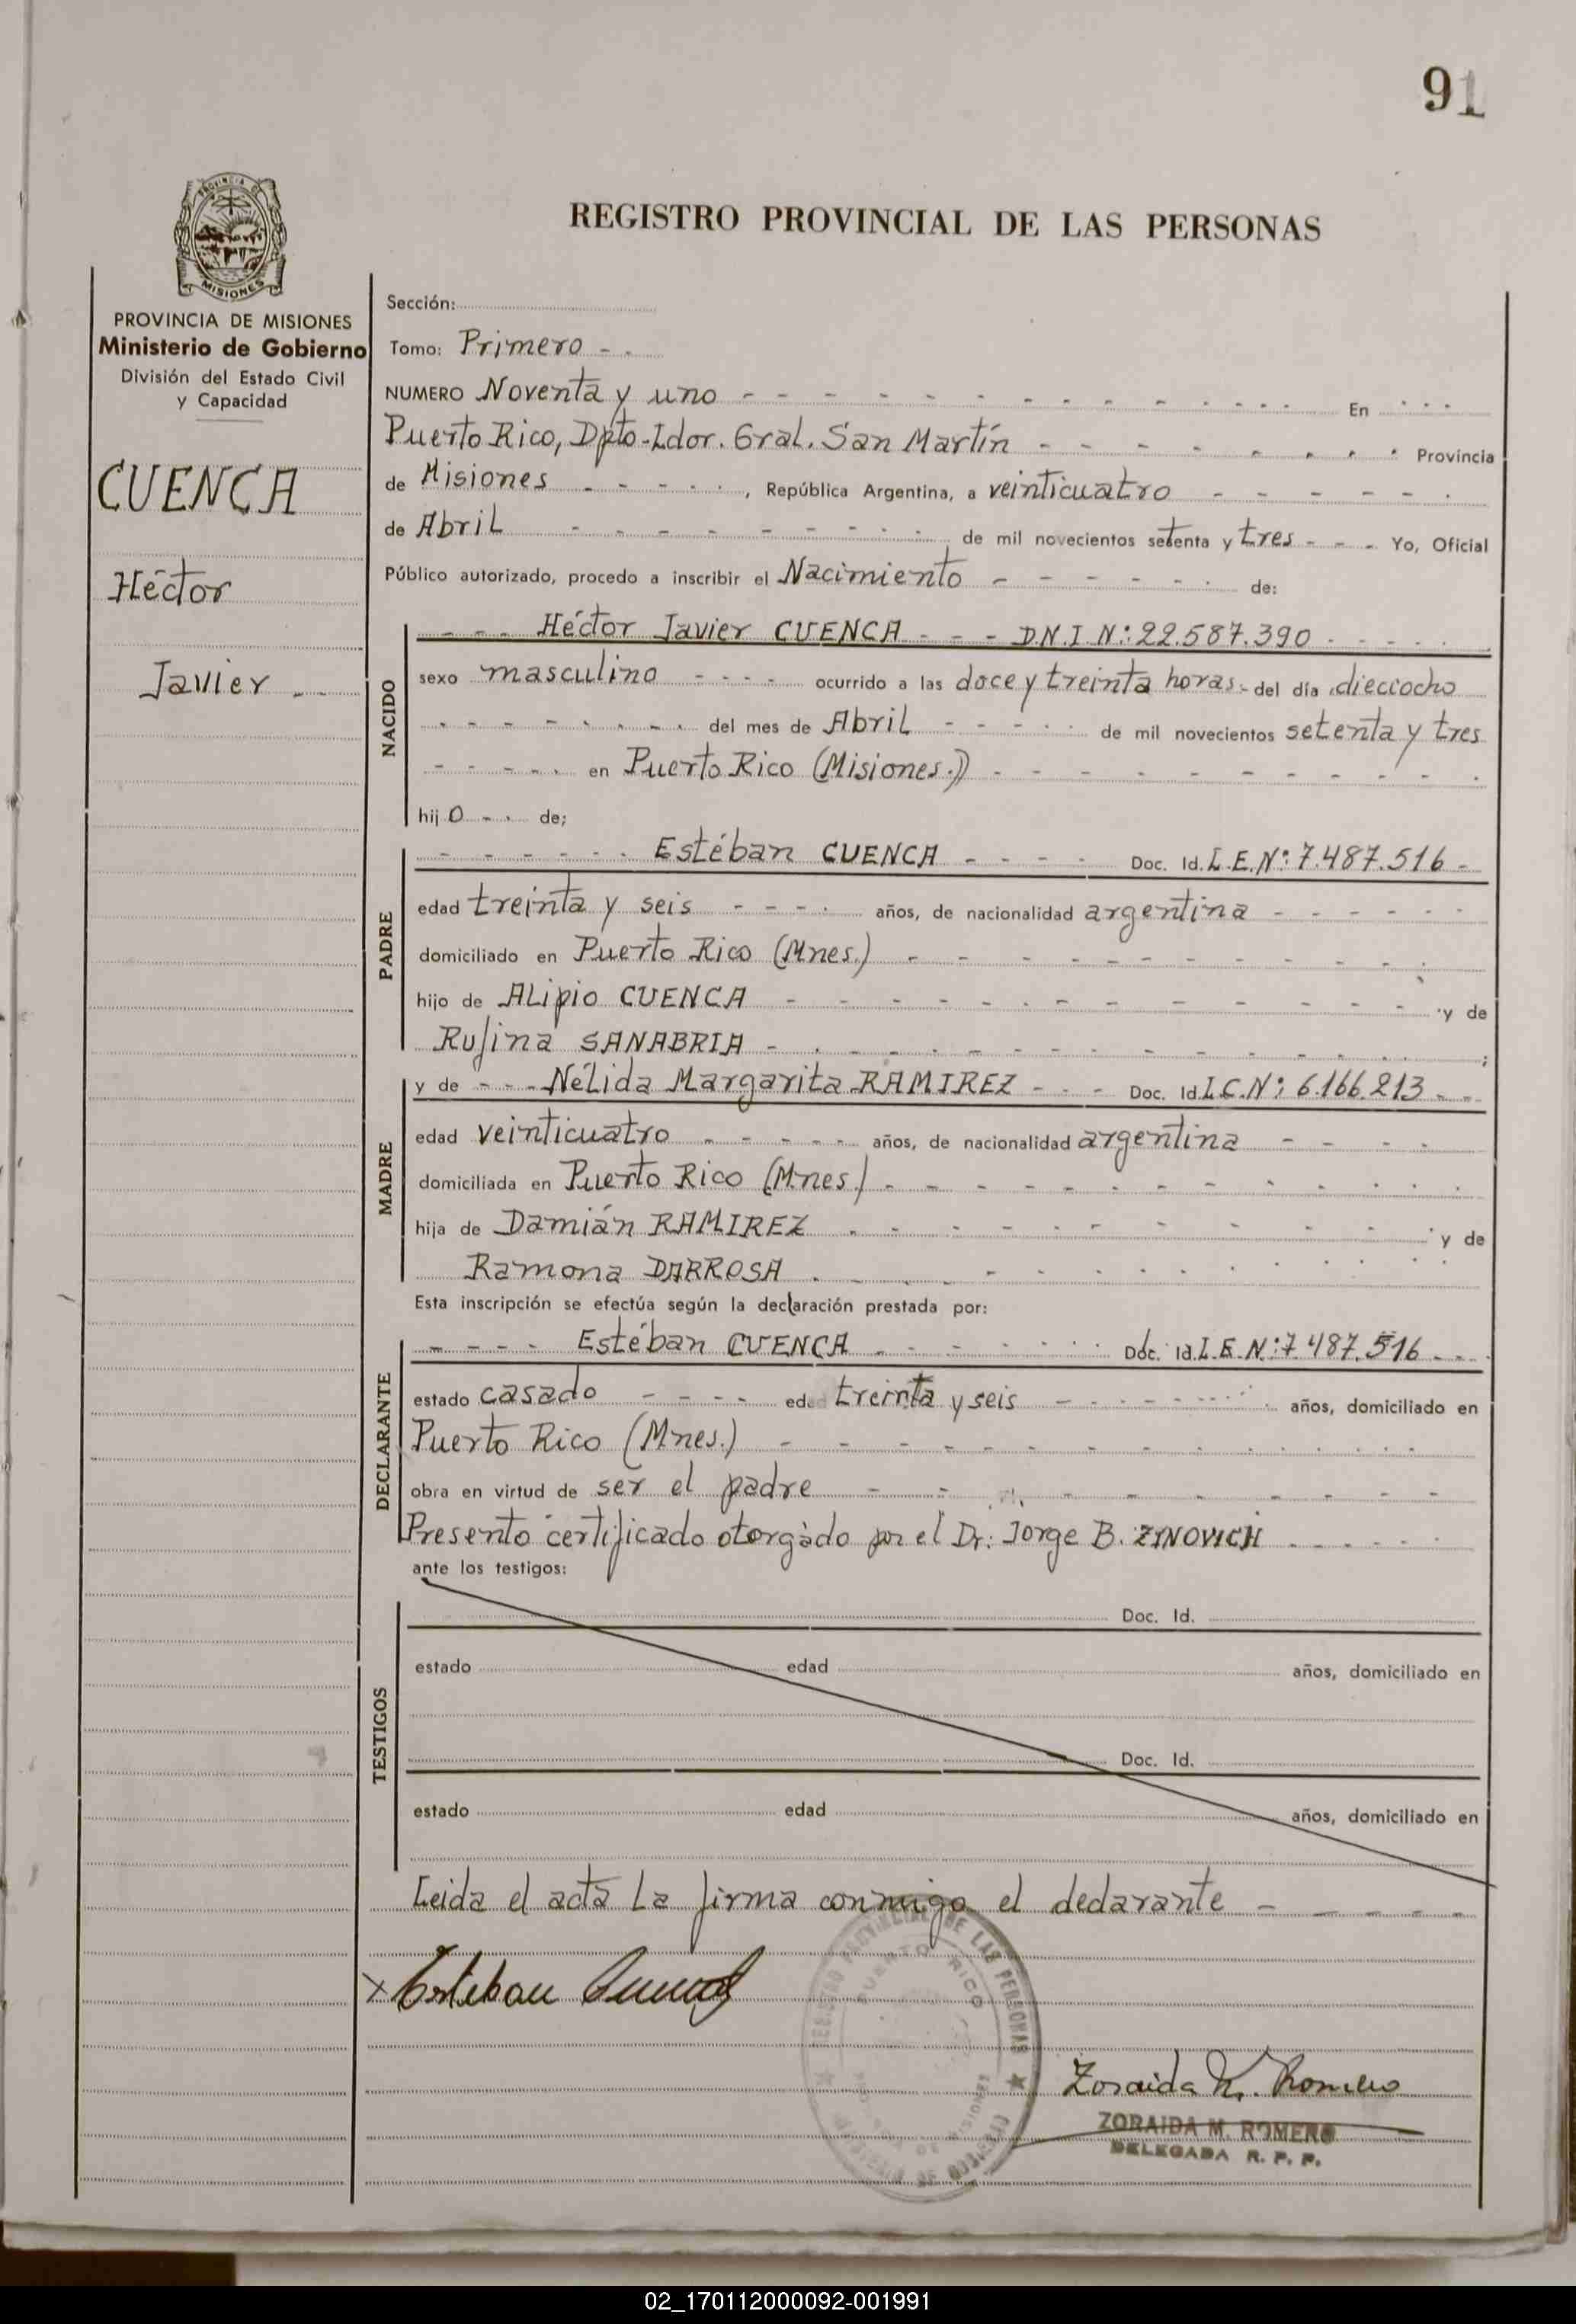 91
REGISTRO PROVINCIAL DE LAS PERSONAS
PROVINCIA DE MISIONES
PROVINCIA DE MISIONES
Ministerio de Gobierno
División del Estado Civil
y Capacidad
CUENCA
Héctor
Javier
Sección:
Tomo: Primero - .
NUMERO Noventa y uno - - - En
Puerto Rico, Dpto-Ldor. Gral. San Martín - - - Provincia
de Misiones - - - , República Argentina, a veinticuatro - - -
de Abril - - - de mil novecientos setenta y tres - - - Yo, Oficial
Público autorizado, procedo a inscribir el Nacimiento - - - de:
NACIDO
- - - Héctor Javier CUENCA - - - D.N.I N: 22.587.390 - - -
sexo masculino - - - - ocurrido a las doce y treinta horas - del día dieciocho
- - - del mes de Abril - - - de mil novecientos setenta y tres
- - - en Puerto Rico (Misiones.) - - -
hijo - - de;
PADRE
- - - Estéban CUENCA - - - Doc. Id. L.E.N: 7.487.516 -
edad treinta y seis - - - - años, de nacionalidad argentina - - -
domiciliado en Puerto Rico (Mnes.) - - -
hijo de ALipio CUENCA - - - y de
Rufina SANABRIA - - - ;
MADRE
y de - - - NéLida Margarita RAMIREZ - - - Doc. Id. L.C.N: 6.166.213 - -
edad veinticuatro - - - años, de nacionalidad argentina - - -
domiciliada en Puerto Rico (Mnes) - - -
hija de Damián RAMIREZ - - - y de
Ramona DARROSA - - -
Esta inscripción se efectúa según la declaración prestada por:
DECLARANTE
- - - - Estéban CUENCA - - - Doc. Id. L.E.N: 7487.516 - -
estado casado - - - - edad treinta y seis - - - años, domiciliado en
Puerto Rico (Mnes.) - - -
obra en virtud de ser el padre - - -
Presentó certificado otorgado por el Dr. Jorge B. ZINOVICH - - -
ante los testigos:
TESTIGOS
Doc. Id.
estado edad años, domiciliado en
Doc. Id.
estado edad años, domiciliado en
Leida el acta La firma conmigo el declarante - - -
x Esteban Cuenca
REGISTRO PROVINCIAL DE LAS PERSONAS
PUERTO RICO
DE MISIONES
Zoraida M. Romero
ZORAIDA M. ROMERO
DELEGADA R. P. P.
02_170112000092-001991